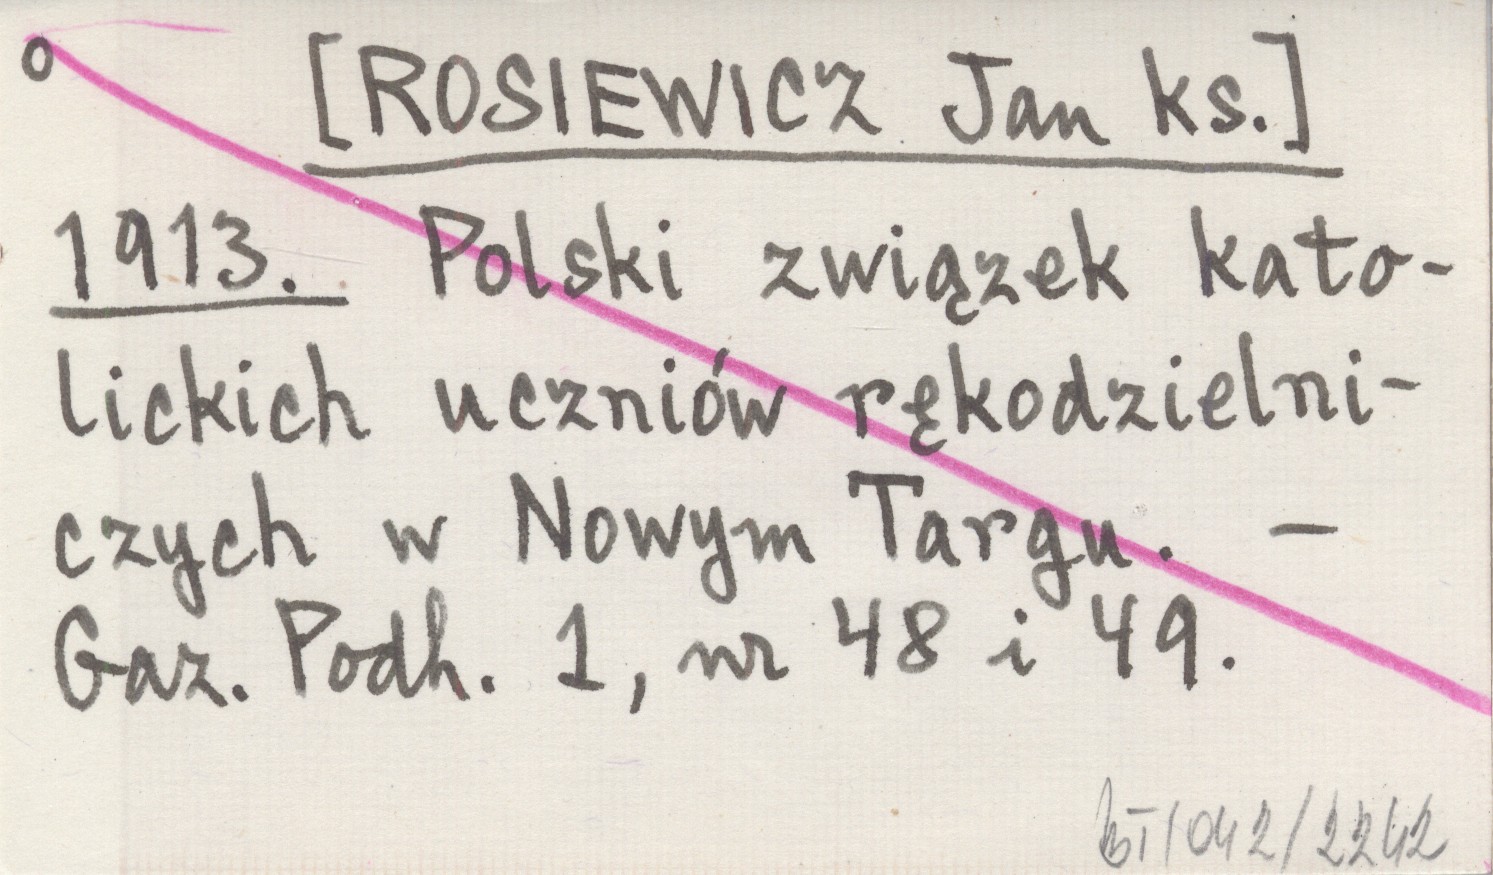 o [ROSIEWICZ Jan ks.]
1913. Polski związek kato-
lickich uczniów rękodzielni-
czych w Nowym Targu. –
Gaz. Podh. 1, nr 48 i 49.
BT/042/2242